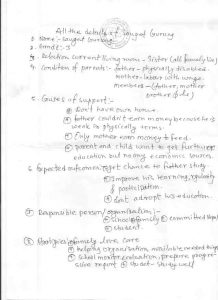 All the details of Sangat Gurung
1. Name - Sangat Gurung
2. Grade - 3
3. Relation current living room - Sister (all family live)
4. Condition of parents - father - physically disabled
mother - labor with wage
members - (father, mother
brother
5. Causes of support:-
Don't have own house
father couldn't earn money because he is
weak in physically terms.
Only mother earn money to feed.
parent and child want to get further
education but no any economic sources.
6. Expected outcomes: get chance to further study
Improve his learning, regularity
& participation.
Don't adropt his education.
7. Responsible person/organization:-
school family committed
student
family, love care
helping organization, available needed things
school monitor evaluation, prepare progress
report student - study well